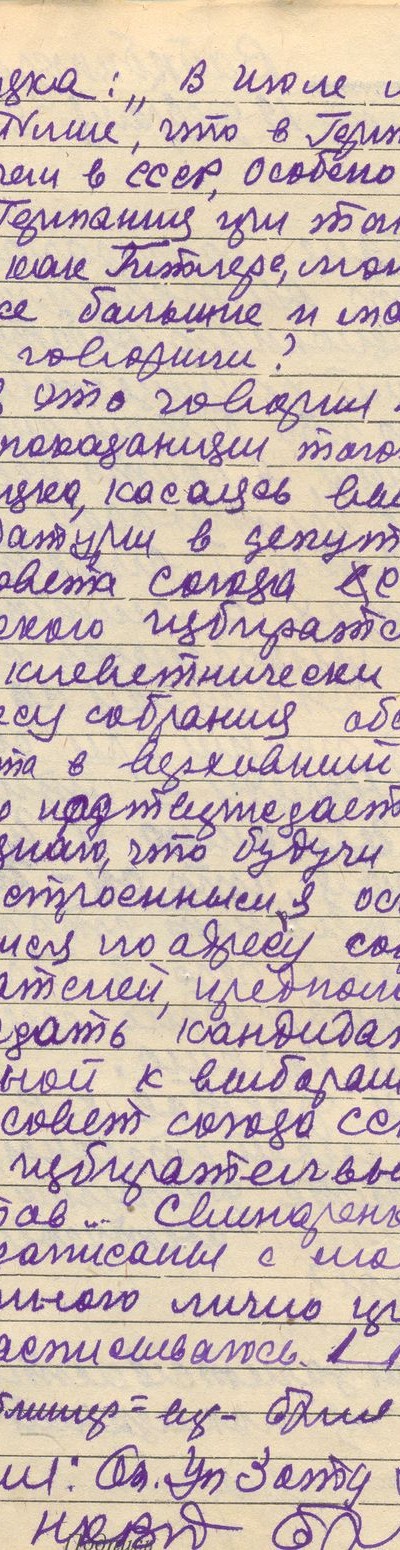 цка: „В июле м
Тише, что в Герм
чем в СССР, особено
Германия при так
как Гитлере, мож
же больше и мо
говорили?
что говорил
показании того
цка, касаясь вы
датуры в депут
овета союза СС
ского избиратс
клеветнически
ресу собрания обс
та в верховний
о подтверждает
знаю, что будучи
строенным, я ос
ися по адресу сов
ателей, предпола
здать кандидат
ной к выборам
совет союза ССР
избирательны
тав... Свинарен
записаны с мо
нного лично пр
расписываюсь.